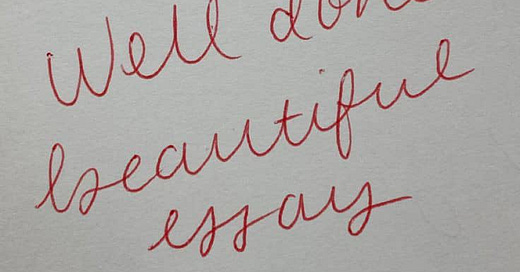 Well done
beautiful
essay